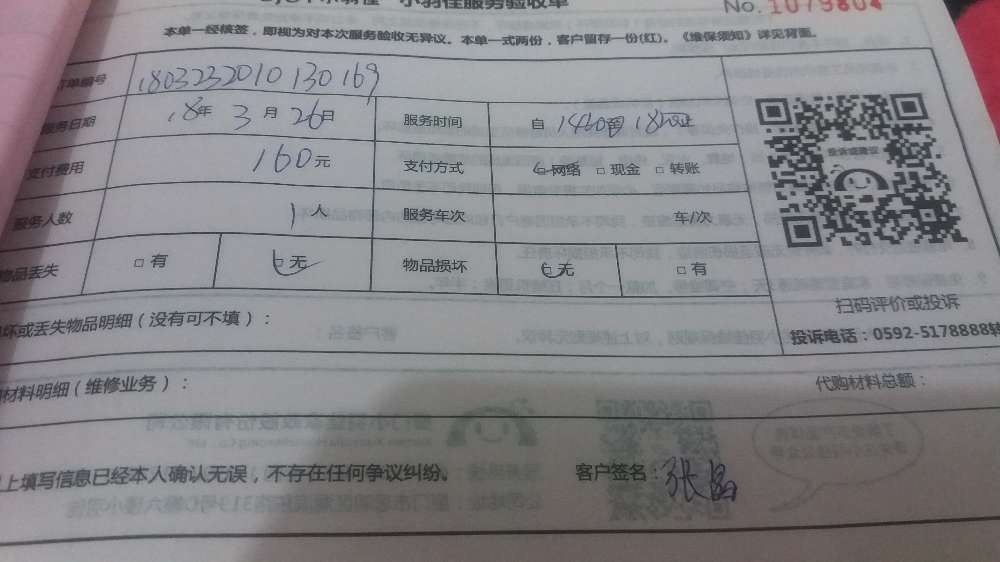 小羽佳服务验收单
No. 1079804
本单一经续签，即视为对本次服务验收无异议。本单一式两份，客户留存一份(红)。《维保须知》详见背面。
单编号 1803232010130169
服务日期 18年 3月 26日 服务时间 自
支付费用 160元 支付方式 网络 □ 现金 □ 转账
服务人数 1人 服务车次 车/次
物品丢失 □ 有 无 物品损坏 无 □ 有
投诉或建议
扫码评价或投诉
投诉电话：0592-5178888转
坏或丢失物品明细（没有可不填）：
材料明细（维修业务）： 代购材料总额：
上填写信息已经本人确认无误，不存在任何争议纠纷。 客户签名：张昌